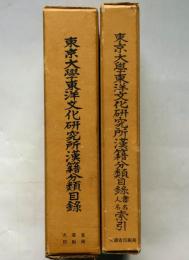 東京大學東洋文化研究所漢籍分類目錄
東京大學東洋文化研究所漢籍分類目錄 書名人名索引